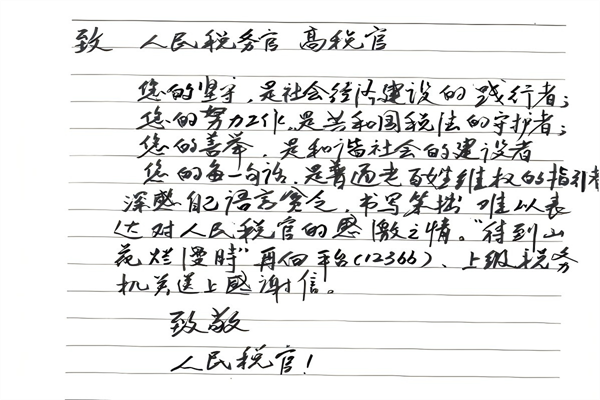 致 人民税务官 高税官
您的坚守,是社会经济建设的践行者;
您的努力工作,是共和国税法的守护者;
您的善举,是和谐社会的建设者
您的每一句话,是普通老百姓维权的指引者
深感自己语言贫乏,书写笨拙 难以表
达对人民税官的感激之情。“待到山
花烂漫時”再向平台(12366)、上级税务
机关送上感谢信。
致敬
人民税官!